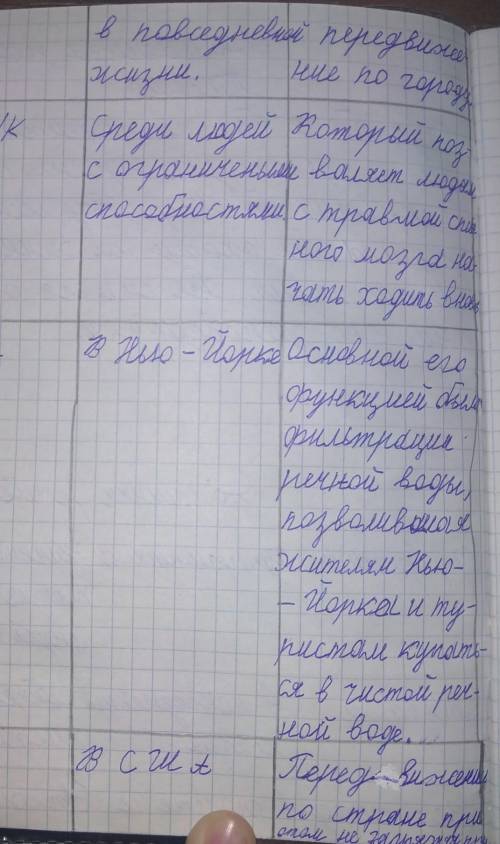 в повседневной
жизни.
передвиже-
ние по городу
Среди людей
с ограничеными
способностями.
Который поз-
валяет людям
с травмой спин
ного мозга на-
чать ходить вновь
В Нью-Йорке
Основной его
функцией была
фильтрация
речной воды,
позволившая
жителям Нью-
-Йорка и ту-
ристам купать-
ся в чистой реч-
ной воде.
В США
Передвижение
по стране при
этом не